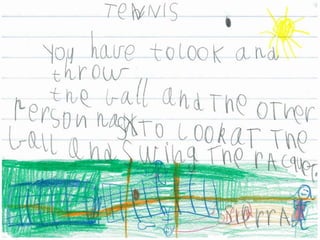 TENNIS
You have to look and
throw
the ball and the other
Person has to look at the
ball and swing the racquet.
Sierra